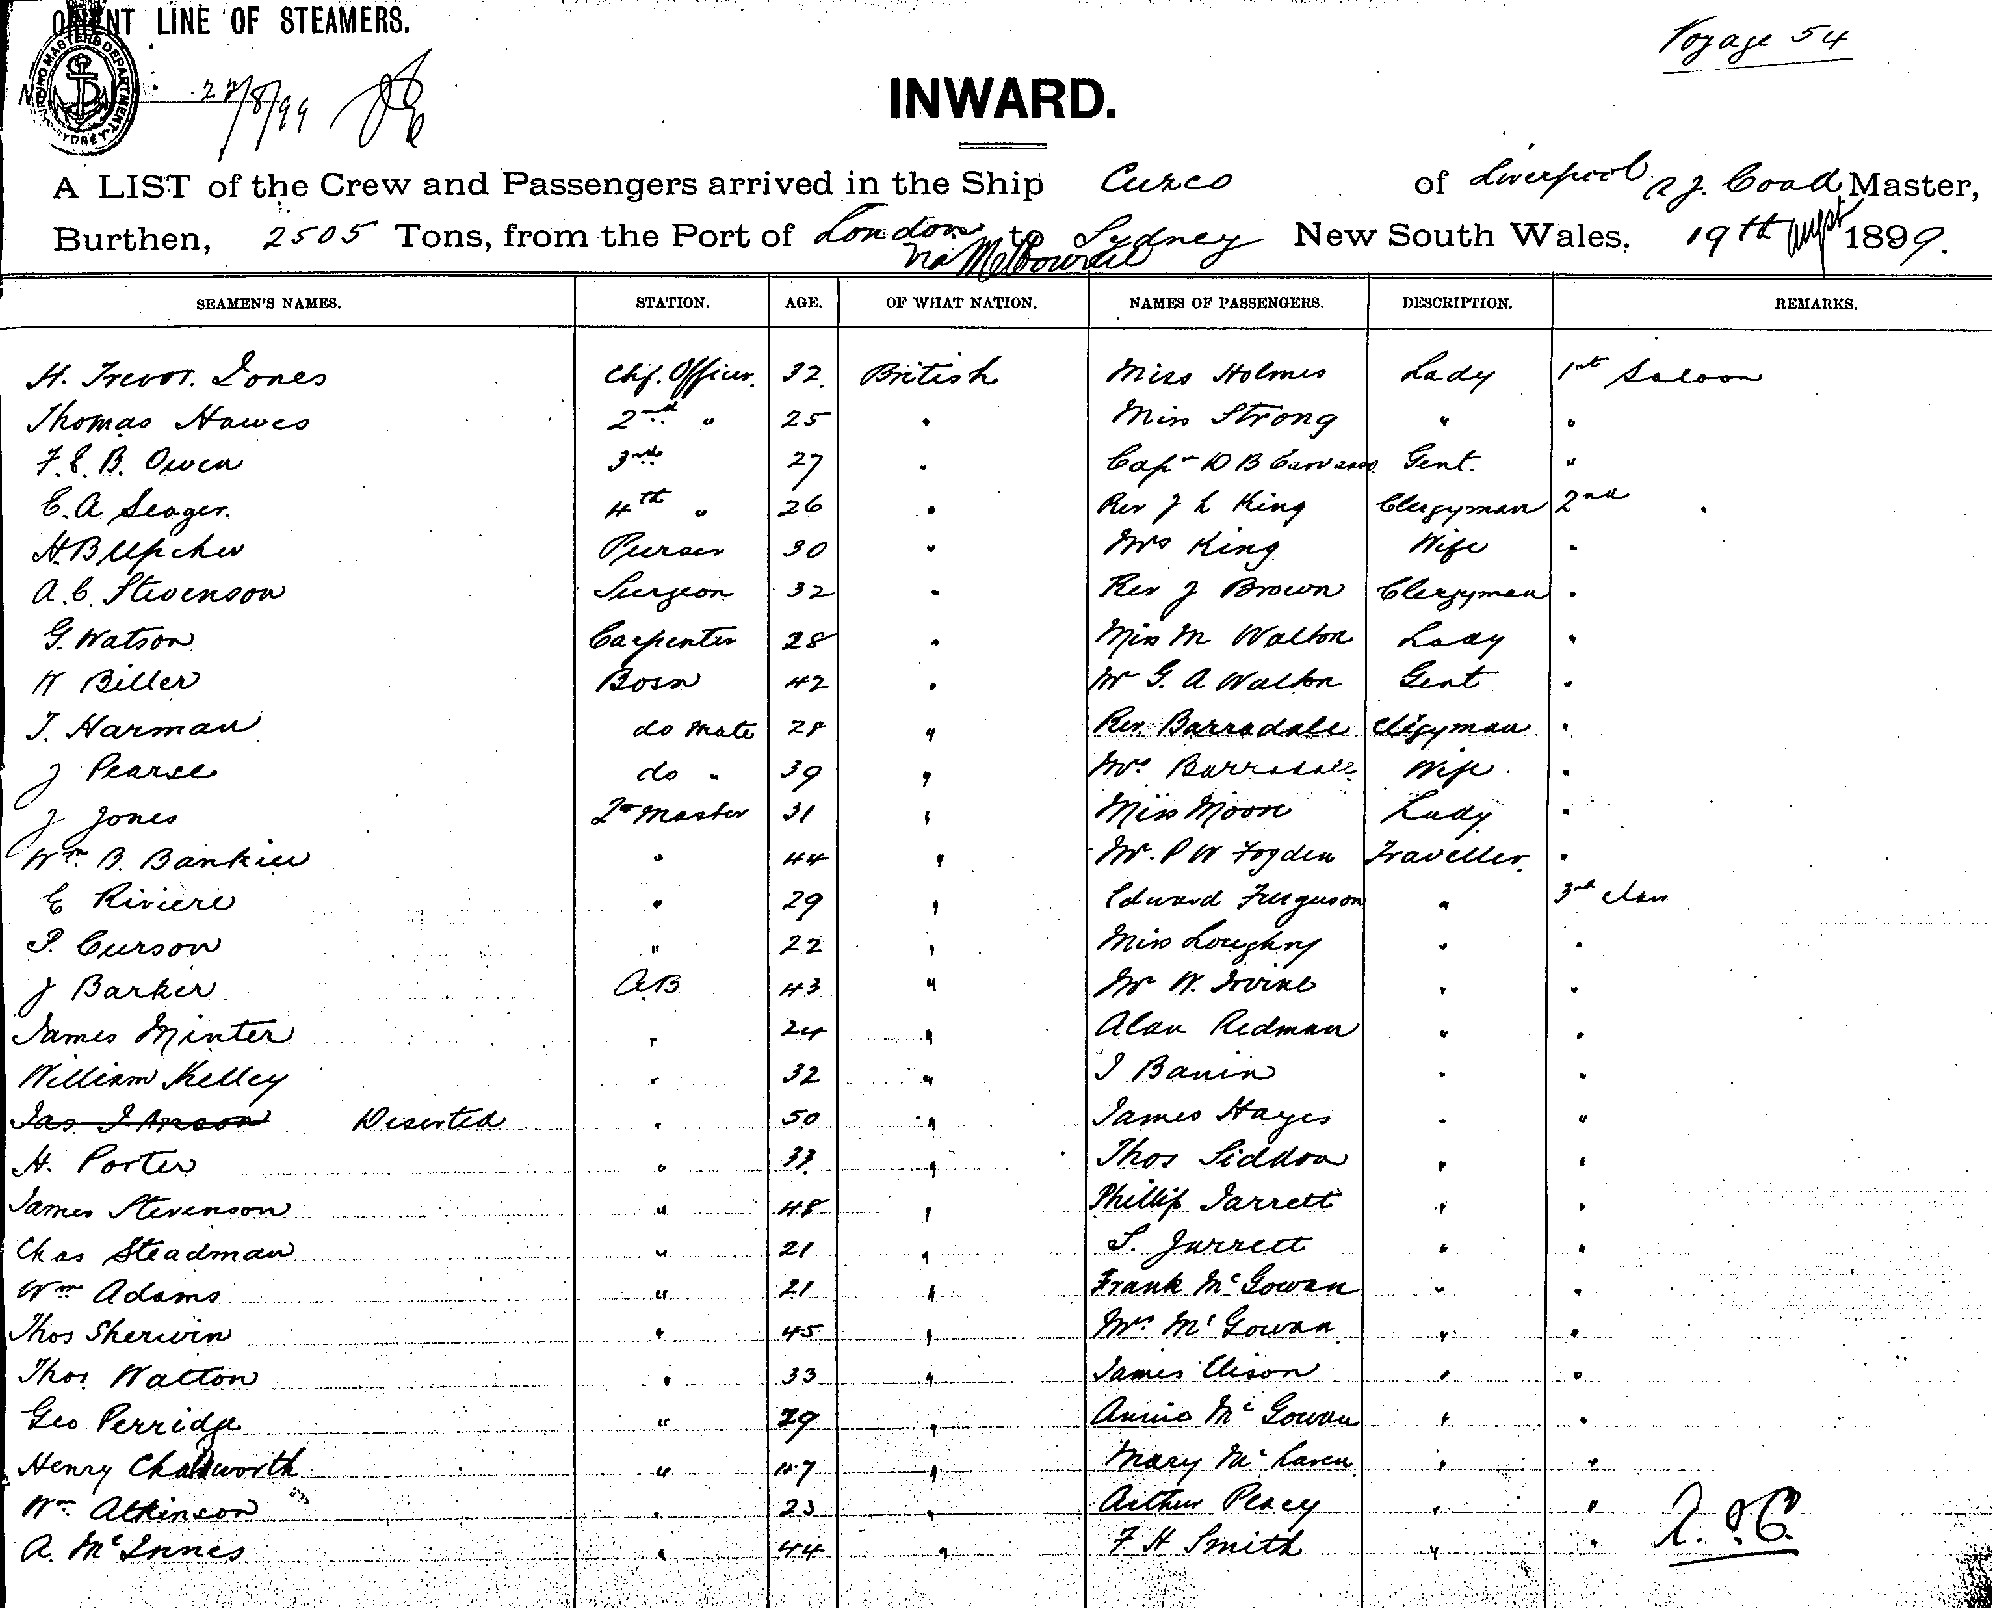 ORIENT LINE OF STEAMERS.
Voyage 54
22/8/99
INWARD.
A LIST of the Crew and Passengers arrived in the Ship Cuzco of Liverpool A J. Coad Master,
Burthen, 2505 Tons, from the Port of London to Sydney New South Wales, 19th August 1899.
via Melbourne
SEAMEN'S NAMES. STATION. AGE. OF WHAT NATION. NAMES OF PASSENGERS. DESCRIPTION. REMARKS.
H. Trevor. Jones Chf. Officer. 32. British Miss Holmes Lady 1st Saloon
Thomas Hawes 2nd " 25 " Miss Strong " "
F. E. B. Owen 3rd 27 " Capt D B Gent. "
E. A Seager. 4th " 26 " Rev J L King Clergyman 2nd "
H. B Upcher Purser 30 " Mrs King Wife "
A. C. Stevenson Surgeon 32 " Rev J Brown Clergyman "
G. Watson Carpenter 28 " Miss M Walton Lady "
W Biller Bosn 42 " Mr G. A Walton Gent "
T. Harman do Mate 28 " Rev. Barradale Clergyman "
J Pearse do " 39 " Mrs Barradale Wife "
J Jones Qr Master 31 " Miss Moon Lady "
Wm B. Bankier " 44 " Mr. P W Fogden Traveller. "
E Riviere " 29 " Edward Ferguson " 3rd Class
P. Curson " 22 " Miss Loughry " "
J Barker A.B 43 " Mr W. Irvine " "
James Minter " 24 " Alan Redman " "
William Kelley " 32 " J Banin " "
Jas J Anson Deserted " 50 " James Hayes " "
H. Porter " 33 " Thos Siddon " "
James Stevenson " 48 " Phillip Jarrett " "
Chas Steadman " 21 " S. Jarrett " "
Wm Adams " 21 " Frank McGowan " "
Thos Sherwin " 45 " Mrs McGowan " "
Thos. Walton " 33 " James Elison " "
Geo Perridge " 29 " Annie McGowan " "
Henry Chatsworth " 47 " Mary McLaren " "
Wm Atkinson " 23 " Arthur Peacy " "
A. McInnes " 44 " F H Smith " "